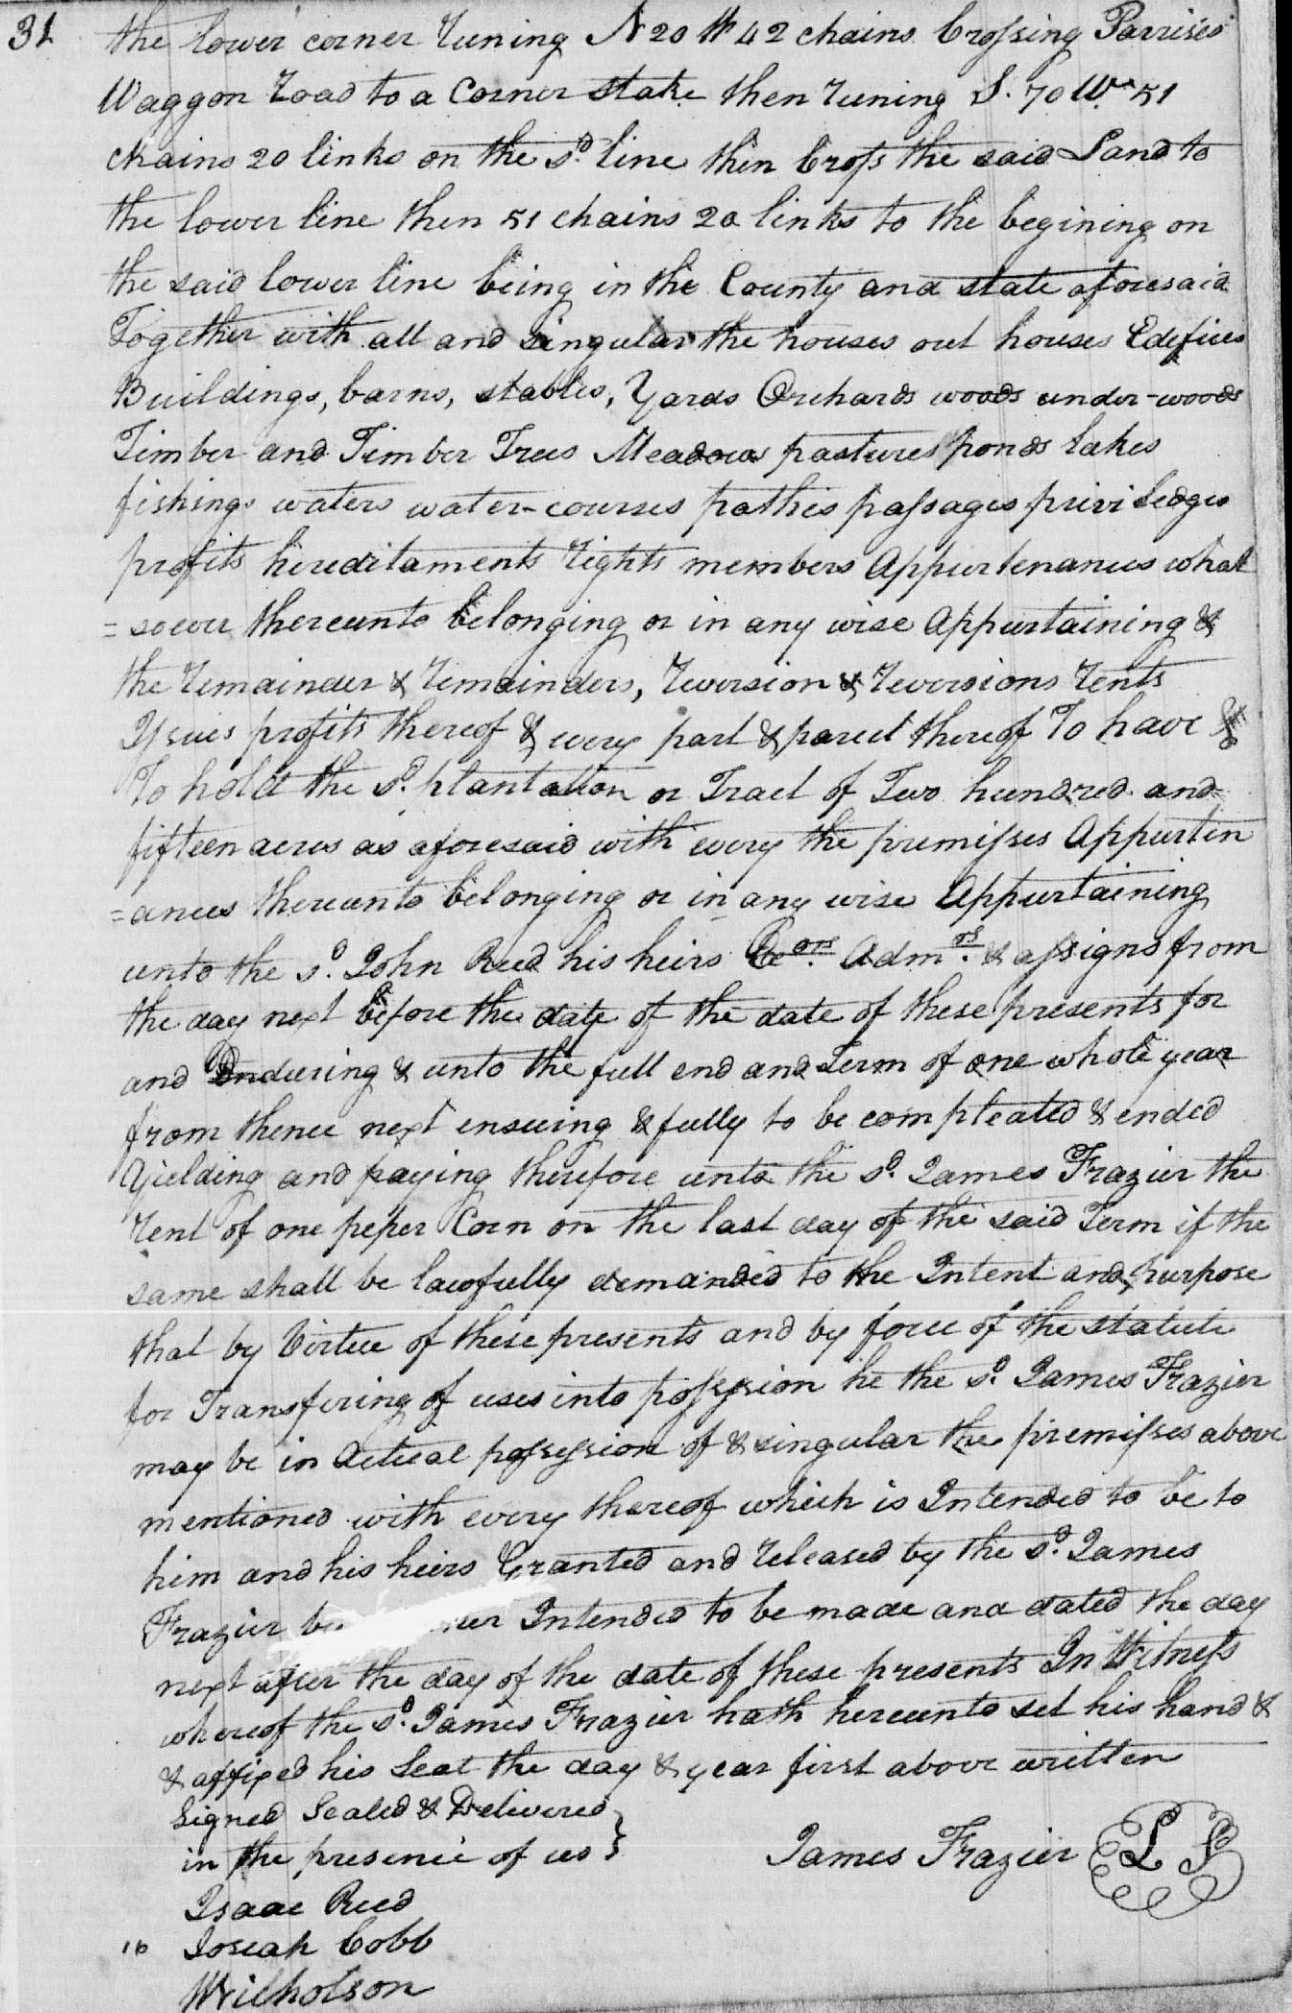 31
the lower corner runing N 20 W 42 chains Crossing Parrises
Waggon road to a Corner stake then runing S. 70 W. 51
chains 20 links on the sd. line then Cross the said Land to
the lower line then 51 chains 20 links to the begining on
the said lower line being in the County and state aforesaid
Together with all and singular the houses out houses Edefices
Buildings, barns, stables, Yards Orchards woods under-woods
Timber and Timber Trees Meadows pastures ponds lakes
fishings waters water-courses pathes passages priviledges
profits hereditaments rights members Appurtenances what
=soever thereunto belonging or in any wise Appurtaining &
the remainder & remainders, reversion & reversions rents
Issues profits thereof & every part & parcel thereof To have &
To hold the sd. plantation or Tract of Two hundred and
fifteen acres as aforesaid with every the premisses Appurtin
=ances thereunto belonging or in any wise Appurtaining
unto the sd. John Reed his heirs Admrs. & assigns from
the day next before the date of the date of these presents for
and Enduering & unto the full end and Term of one whole year
from thence next ensuing & fully to be compleated & ended
Yielding and paying therefore unto the sd. James Frazier the
rent of one peper Corn on the last day of the said Term if the
same shall be lawfully demanded to the Intent and purpose
that by Virtue of these presents and by force of the statute
for Transfering of uses into possession he the sd. James Frazier
may be in Actual possession of & singular the premisses above
mentioned with every thereof which is Intended to be to
him and his heirs Granted and released by the sd. James
Frazier Intended to be made and dated the day
next after the day of the date of these presents In Witness
whereof the sd. James Frazier hath hereunto set his hand &
& affixed his Seal the day & year first above written
Signed Sealed & Delivered
in the presence of us }
James Frazier L S
Isaac Reed
16 Josiah Cobb
W Nicholson